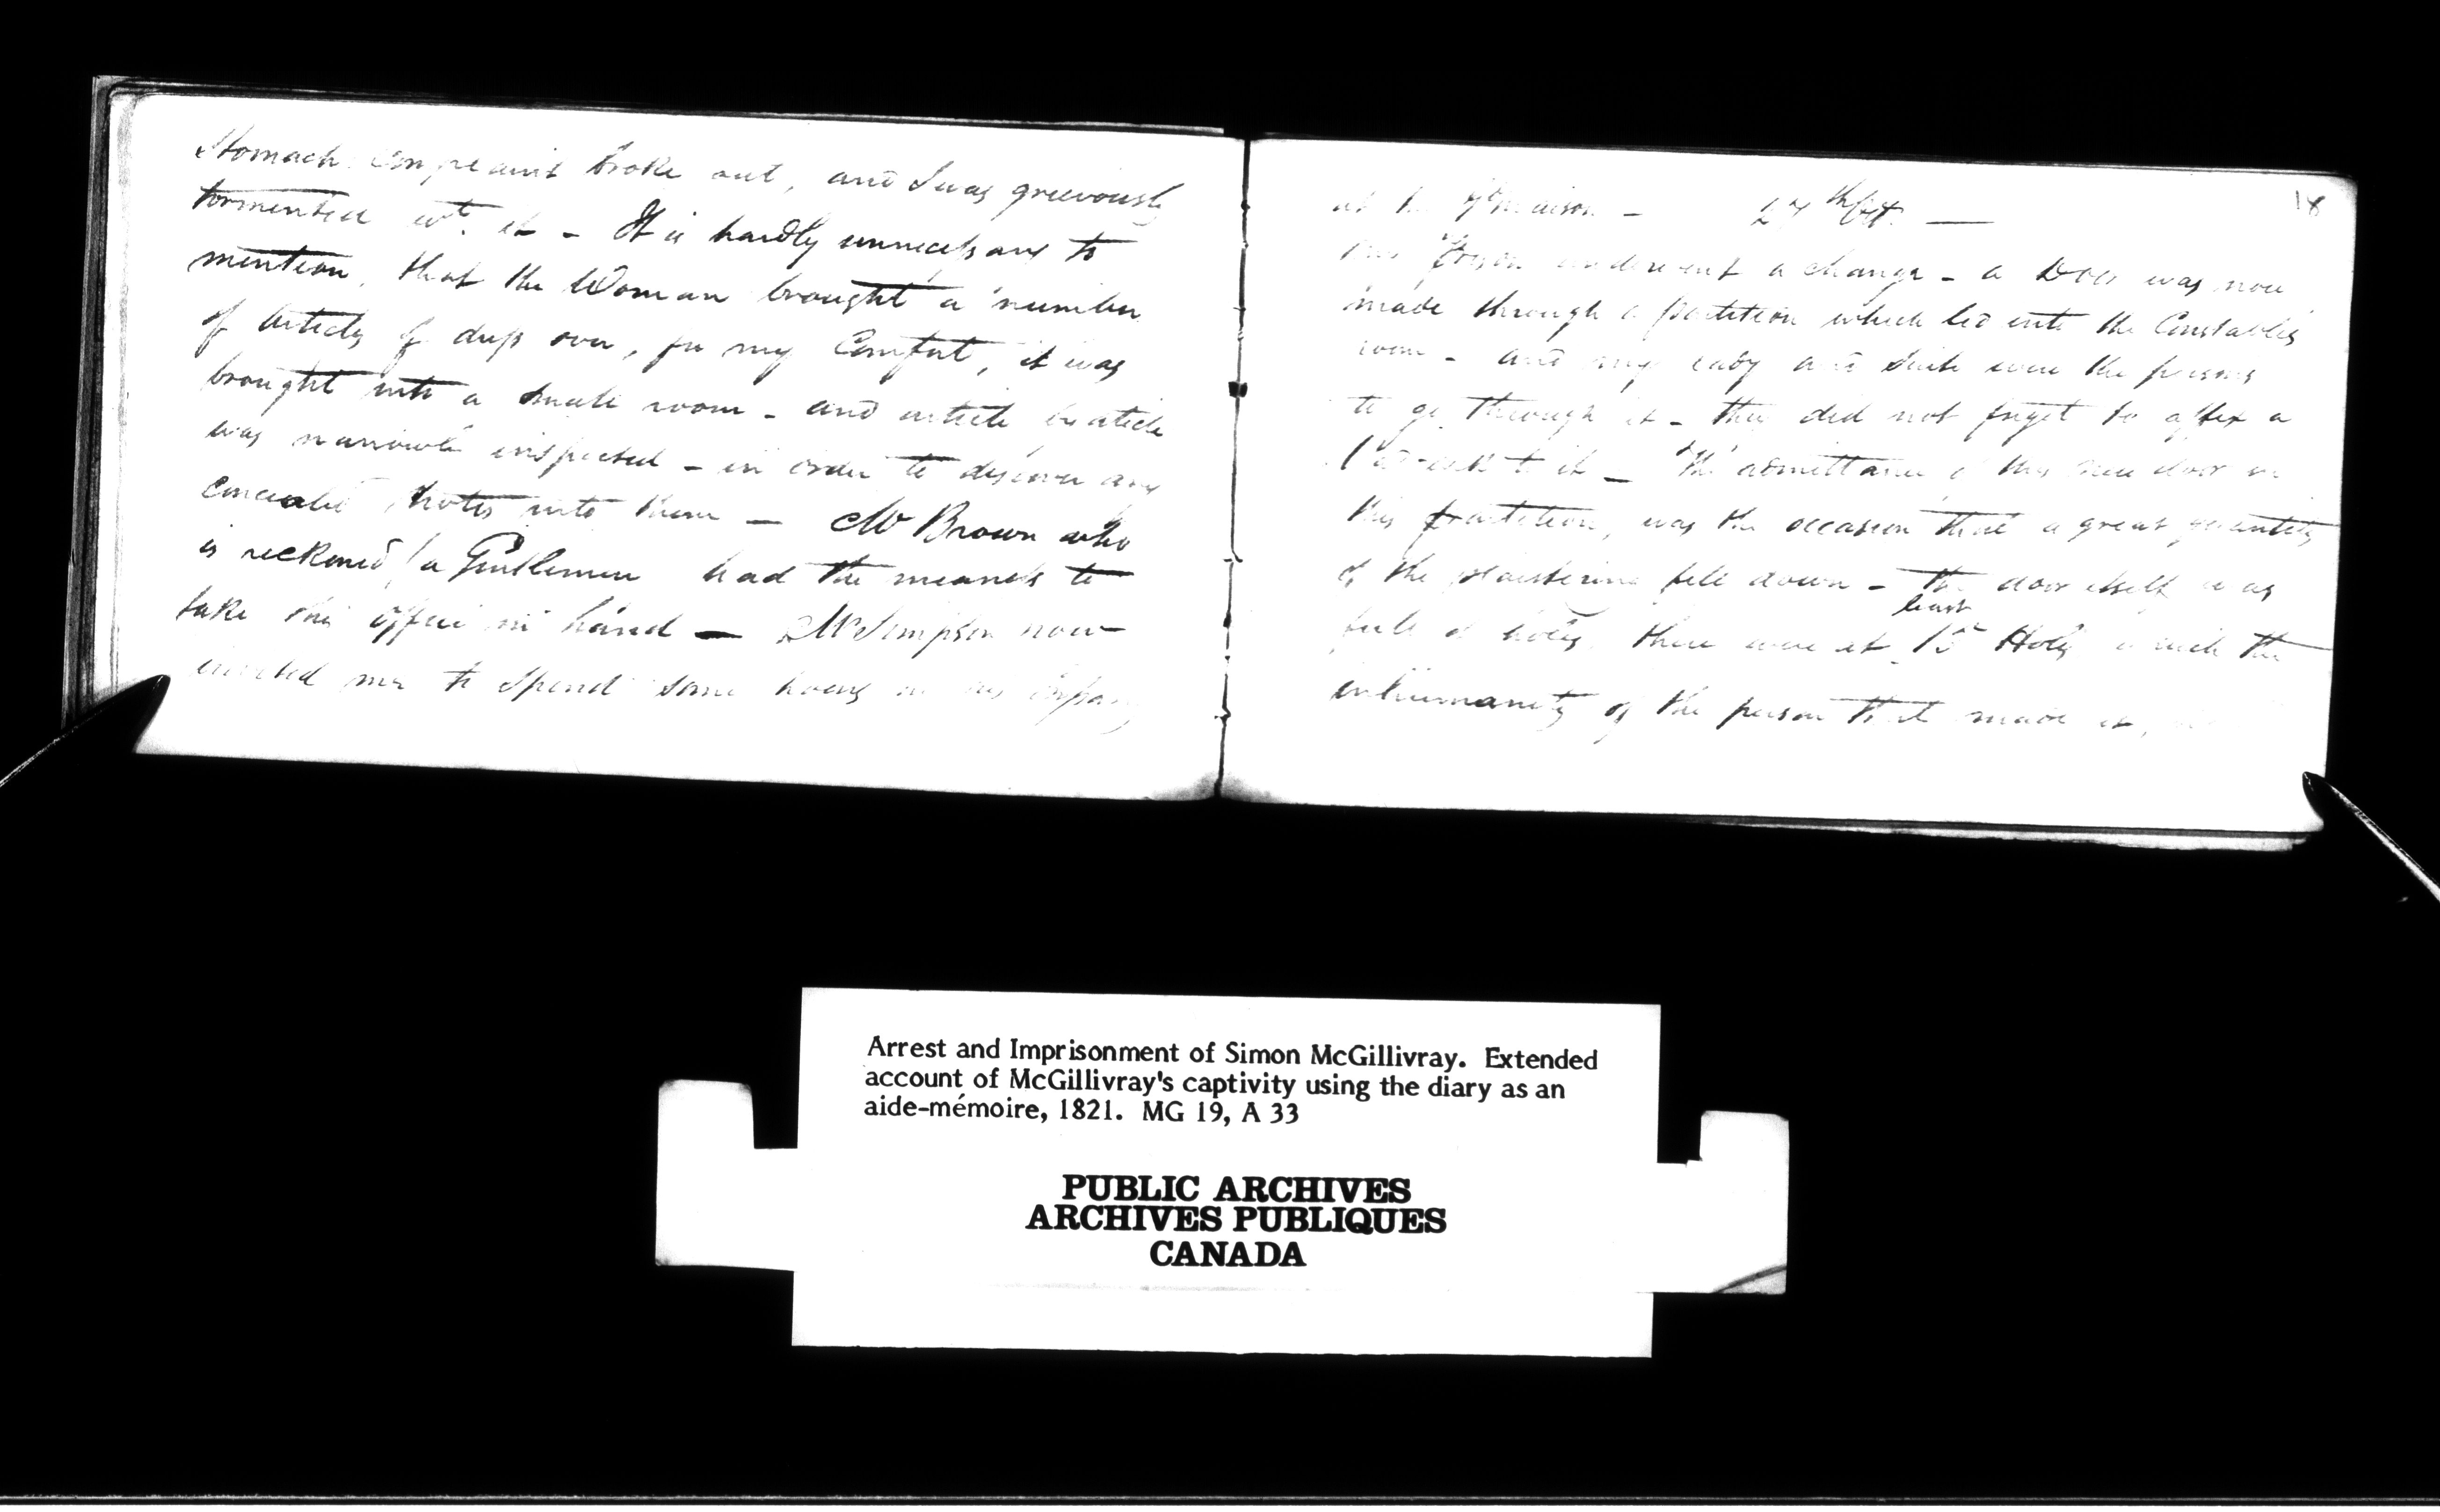 Stomach Complaint broke out, and I was greevously
tormented wt. it - It is hardly unnecessary to
mention, that the Woman brought a number
of Articles of dress over, for my Comfort, it was
brought into a small room - and article by article
was narrowly inspected - in order to discover any
concealed notes into them - Mr Brown who
is reckoned a Gentlemen had the meanness to
take this office in hand - Mr Simpson now
invited me to spend some hours in his Company
at the 27th Octr. -
18
This prison underwent a change - a Door was now
made through a partition which led into the Constables
room - and my lady and suite were the persons
to go through it - they did not forget to affix a
Padlock to it - The admittance of this new door in
this partition, was the occasion that a great quantity
of the plaistering fell down - the door itself was
full of holes, there were at least 15 Holes which the
inhumanity of the person that made it,
Arrest and Imprisonment of Simon McGillivray. Extended
account of McGillivray's captivity using the diary as an
aide-mémoire, 1821. MG 19, A 33
PUBLIC ARCHIVES
ARCHIVES PUBLIQUES
CANADA